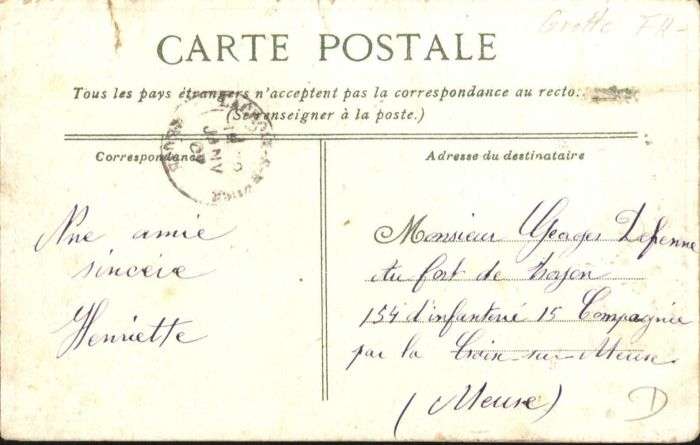 Grotte
CARTE POSTALE
Tous les pays étrangers n'acceptent pas la correspondance au recto.
(Se renseigner à la poste.)
JANV
Correspondance
Adresse du destinataire
Une amie
sincère
Henriette
Monsieur Georges Defenne
au fort de troyon
154 d'infanterie 15 Compagnie
par la Croix-sur-Meuse
(Meuse)
D